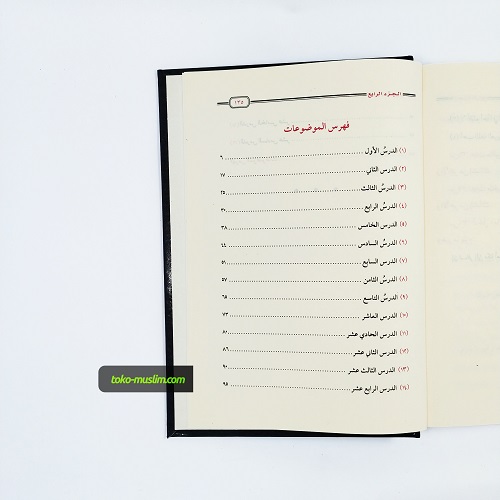 الجزء الرابع
١٣٥
فهرس الموضوعات
(١) الدرسُ الأول ٦
(٢) الدرسُ الثاني ١٧
(٣) الدرسُ الثالث ٢٥
(٤) الدرسُ الرابع ٣٠
(٥) الدرس الخامس ٣٨
(٦) الدرسُ السادس ٤٤
(٧) الدرس السابع ٥١
(٨) الدرسُ الثامن ٥٧
(٩) الدرسُ التاسع ٦٥
(١٠) الدرس العاشر ٧٣
(١١) الدرس الحادي عشر ٨٠
(١٢) الدرس الثاني عشر ٨٦
(١٣) الدرس الثالث عشر ٩٠
(١٤) الدرس الرابع عشر ٩٥
toko-muslim.com